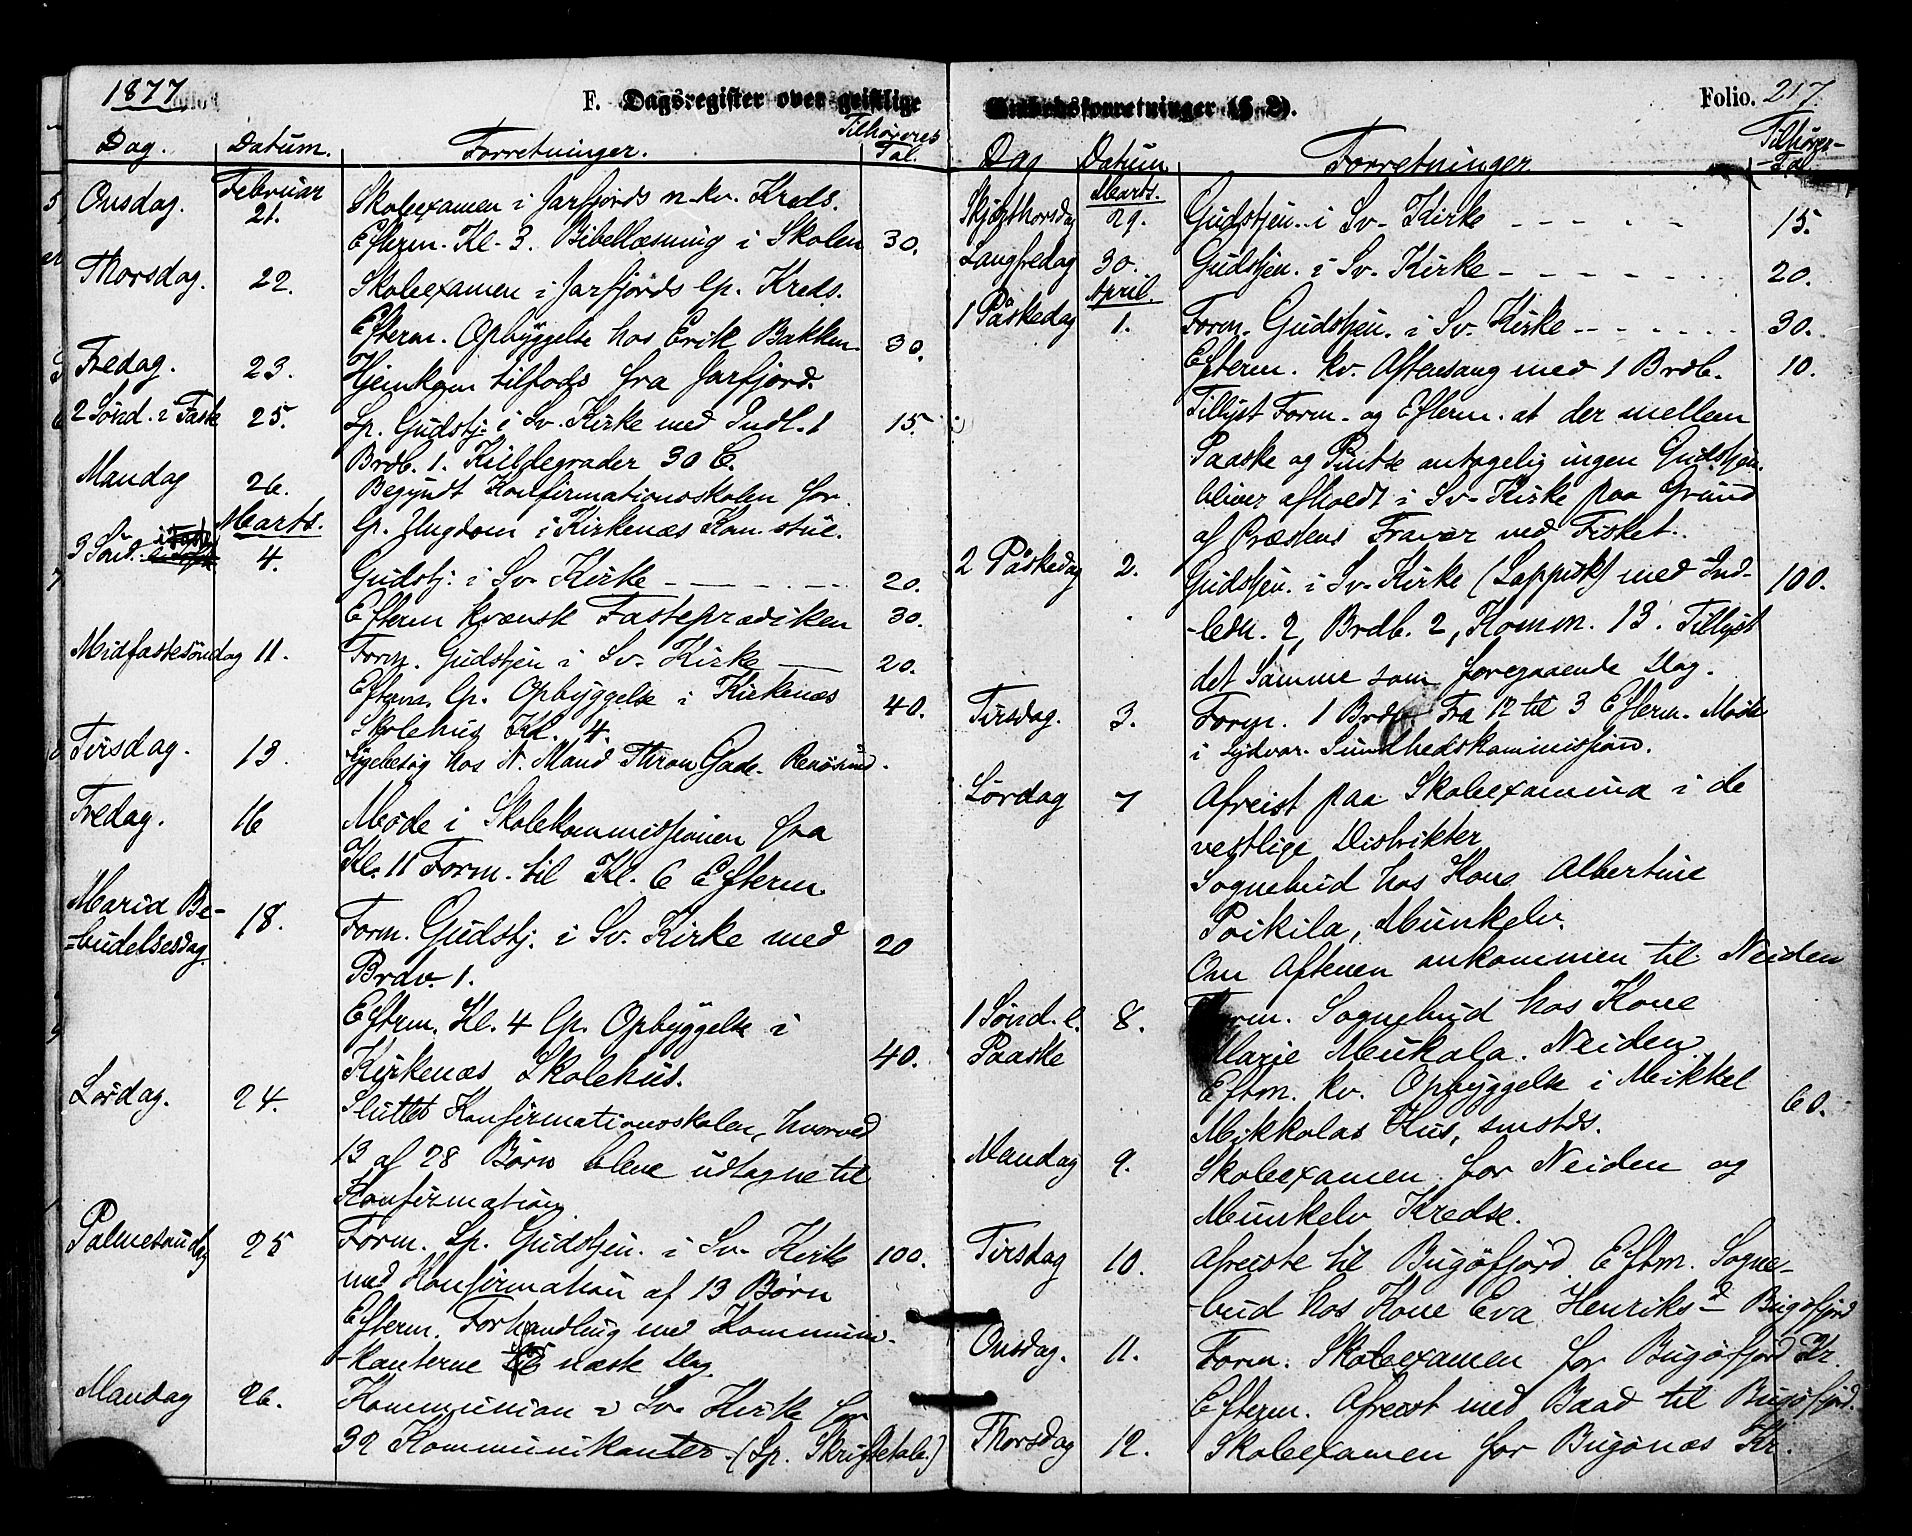 1877.
F. Dagsregister over geistlige
Dag. Datum. Forretninger. Tilhøreres Tal.
Onsdag. Februar 21. Skoleexamen i Jarfjords n-kv. Kreds.
Efterm. Kl. 3. Bibellæsning i Skolen 30.
Thorsdag. 22. Skoleexamen i Jarfjords lp. Kreds.
Efterm. Opbyggelse hos Erik Bakken. 30.
Fredag. 23. Hjemkom tilfods fra Jarfjord.
2 Sønd. i Faste 25. Lp. Gudstj. i Sv. Kirke med Indl. 1 15.
Brdb. 1. Kuldegrader 30 C.
Mandag 26. Begyndt Konfirmationsskolen for
lp. Ungdom i Kirkenæs Kom. stue.
3 Sønd. i Faste Marts. 4. Gudstj. i Sv. Kirke - - - - 20.
Efterm kvænsk Fasteprædiken 30.
Midfastesøndag 11. Form. Gudstjen i Sv. Kirke - 20.
Efterm. lp. Opbyggelse i Kirkenæs 40.
Skolehus Kl. 4.
Tirsdag. 13. Sygebesøg hos N. Mand Thron Gade. Renøsund.
Fredag. 16 Møde i Skolekommissionen fra
Kl. 11 Form. til Kl. 6 Efterm.
Maria Be- 18. Form. Gudstj. i Sv. Kirke med 20
-budelsesdag. Brdv. 1.
Efterm. Kl. 4 lp. Opbyggelse i
Kirkenæs Skolehus. 40.
Lørdag. 24. Sluttet Konfirmationsskolen, hvorved
13 af 28 Børn bleve udtagne til
Konfirmation.
Palmesøndag 25 Form. Lp. Gudstjen. i Sv. Kirke 100.
med Konfirmation af 13 Børn
Efterm. Forhandling med Kommuni-
-kanterne næste Dag
Mandag 26. Kommunion i Sv. Kirke for
32 Kommunikanter. (Lp. Skriftetale.)
Embedsforretninger (§ 2). Folio. 217.
Dag Datum Forretninger. Tilhører- -Tal.
Skjærthorsdag Marts. 29. Gudstjen. i Sv. Kirke - - - - 15.
Langfredag 30. Gudstjen. i Sv. Kirke - - - - - 20.
1 Påskedag April. 1. Form. Gudstjen. i Sv. Kirke - - - - 30.
Efterm. kv. Aftensang med 1 Brdb. 10.
Tillyst Form. og Efterm. at der mellem
Paaske og Pintse antagelig ingen Gudstjen.
bliver afholdt i Sv. Kirke paa Grund
af Præstens Fravær ved Fisket.
2 Påskedag 2. Gudstjen. i Sv. Kirke (Lappisk) med Ind- 100.
-ledn. 2, Brdb. 2, Komm. 13. Tillyst
det Samme som foregaaende Dag.
Tirsdag. 3. Form. 1 Brdp Fra 12 til 3 Efterm. Møde
i Sydvar. Sundhedskommission.
Lørdag 7 Afreist paa Skoleexamina i de
vestlige Distrikter
Sognebud hos Kone Albertine
Poikila, Munkelv.
Om Aftenen ankommen til Neiden
1 Sønd. e. 8. Form. Sognebud hos Kone
Paaske Marie Mukala. Neiden.
Eftm. kv. Opbyggelse i Mikkel 60.
Mikkolas Hus, smstds.
Mandag 9. Skoleexamen for Neiden og
Munkelv Kredse.
Tirsdag 10. Afreiste til Bugøfjord. Eftm. Sogne-
-bud hos Kone Eva Henriksd Bugøfjord
Onsdag. 11. Form. Skoleexamen for Bugøfjord Kr.
Efterm. Afreist med Baad til Bugøfjord.
Thorsdag 12. Skoleexamen for Bugønæs Kr.